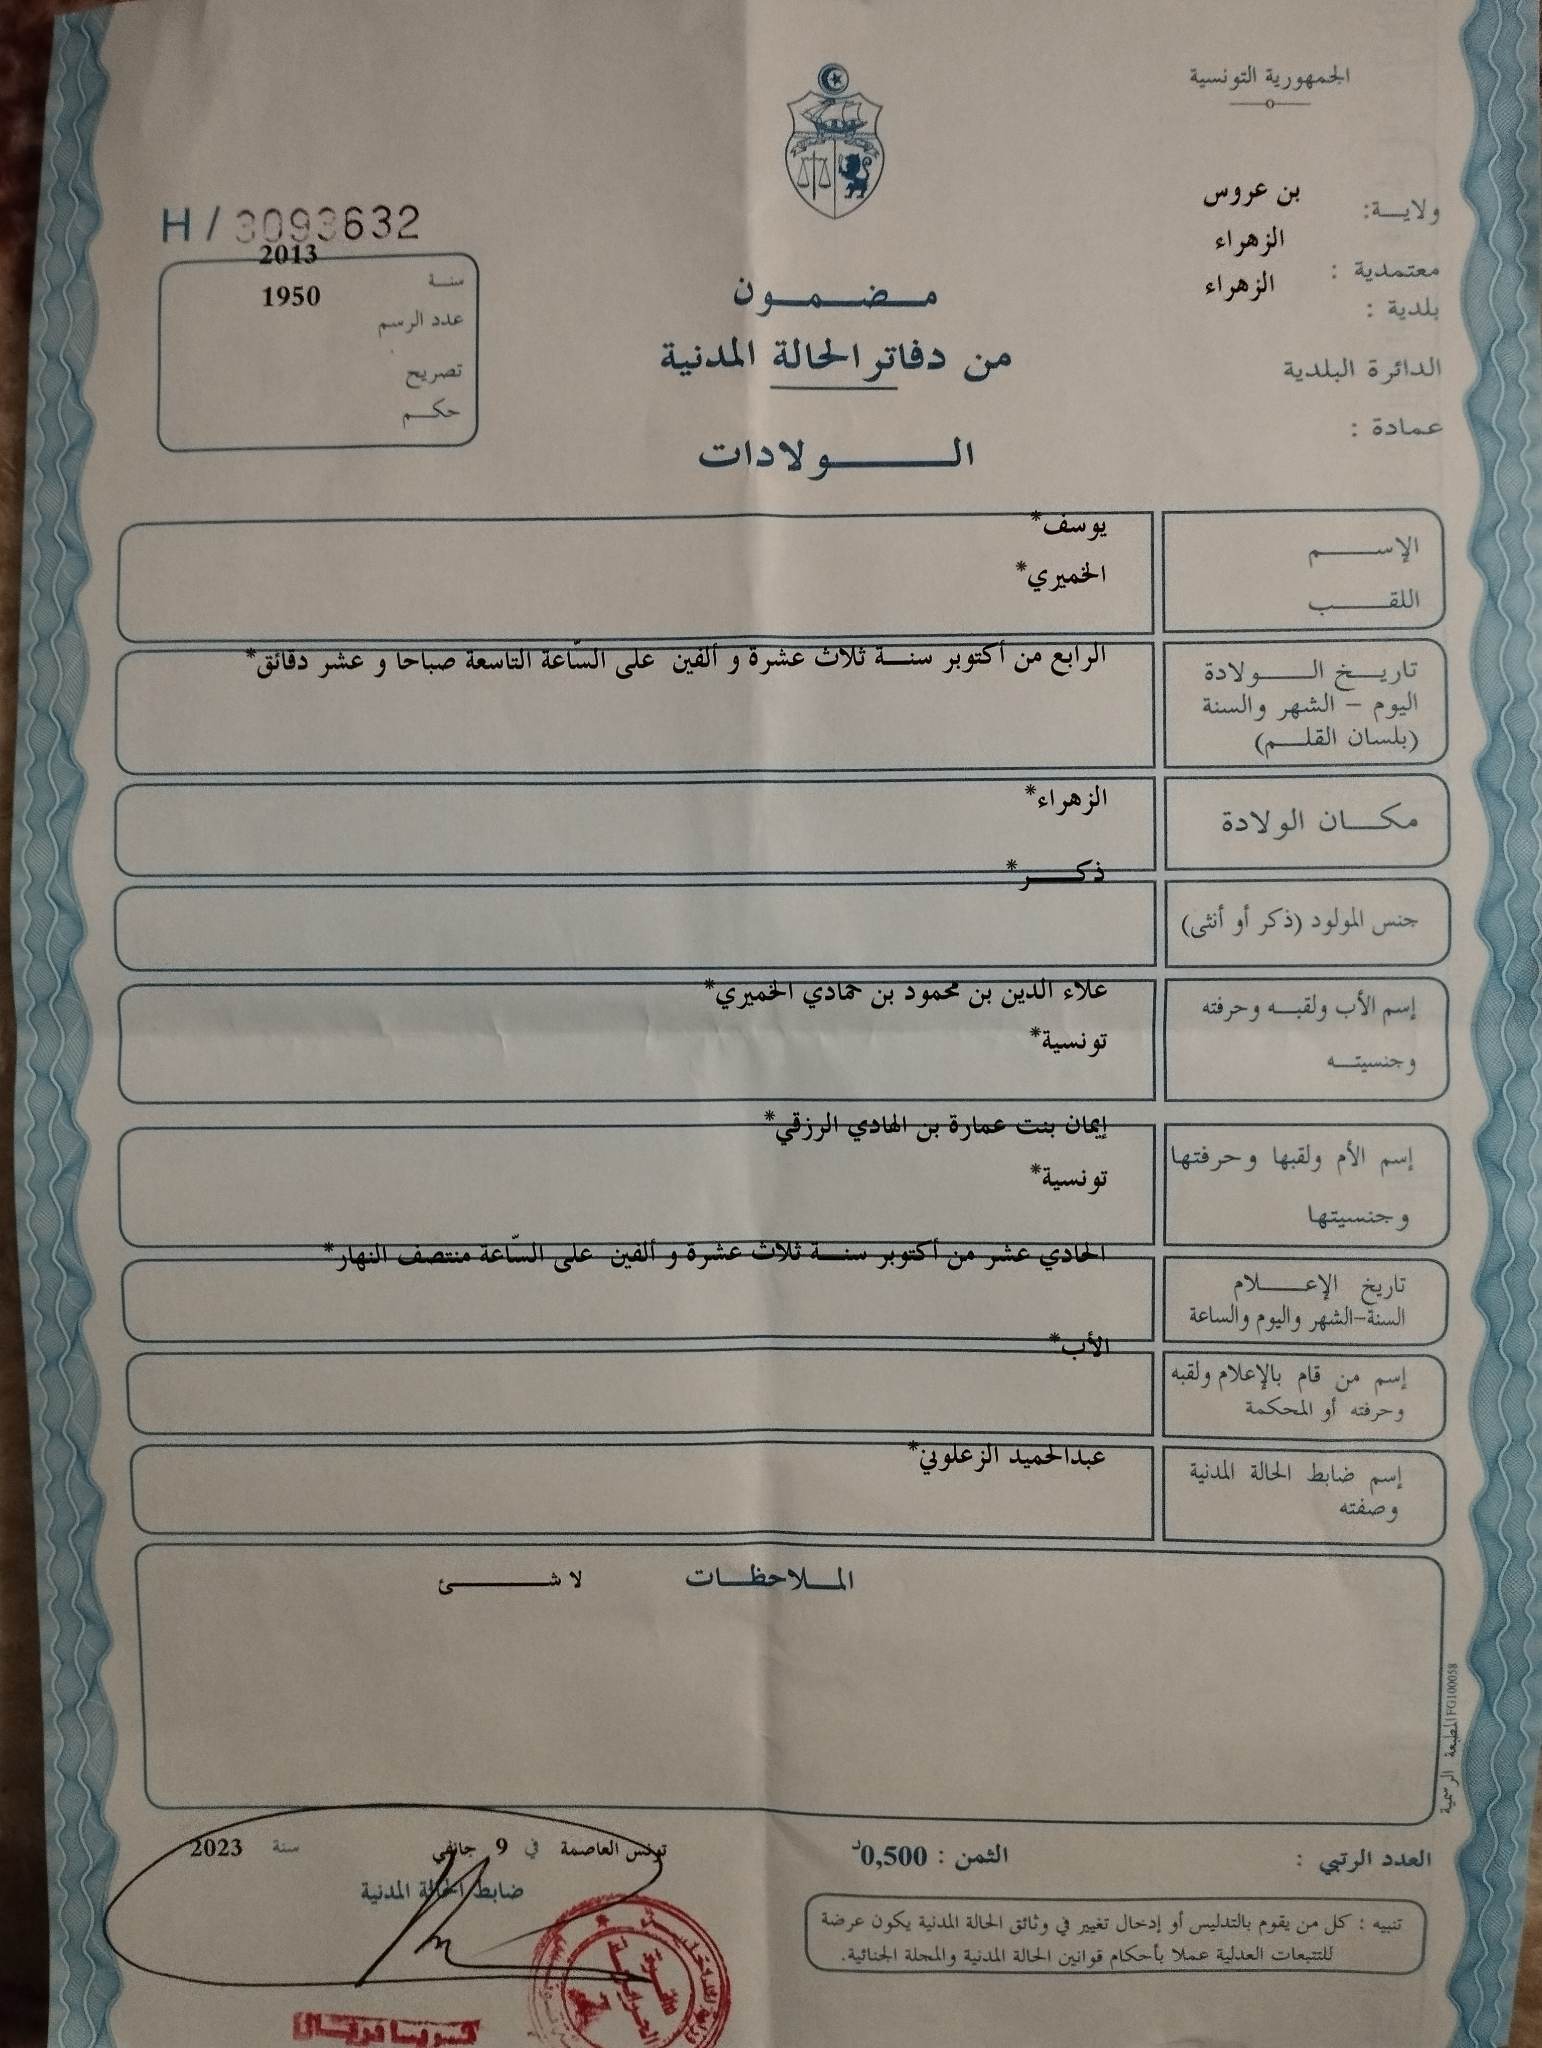 الجمهورية التونسية
ولايـة: بن عروس
معتمدية : الزهراء
بلدية : الزهراء
الدائرة البلدية
عمادة :
H / 3093632
سنـة 2013
عدد الرسم 1950
تصريح
حكـم
مـضـمـون
من دفاتر الحالة المدنية
الـولادات
الإسـم يوسف*
اللقـب الخميري*
تاريـخ الـولادة
اليوم – الشهر والسنة
(بلسان القلـم)
الرابع من أكتوبر سنـة ثلاث عشرة و ألفين على السّاعة التاسعة صباحا و عشر دقائق*
مكـان الولادة الزهراء*
جنس المولود (ذكر أو أنثى) ذكـر*
إسم الأب ولقبـه وحرفته علاء الدين بن محمود بن حمادي الخميري*
وجنسيتـه تونسية*
إسم الأم ولقبها وحرفتها إيمان بنت عمارة بن الهادي الرزقي*
وجنسيتها تونسية*
تاريخ الإعـلام
السنة-الشهر واليوم والساعة
الحادي عشر من أكتوبر سنـة ثلاث عشرة و ألفين على السّاعة منتصف النهار*
إسم من قام بالإعلام ولقبه
وحرفته أو المحكمة
الأب*
إسم ضابط الحالة المدنية
وصفته
عبدالحميد الزعلوني*
الملاحظـات لا شـئ
المطبعة الرسمية FG100058
العدد الرتبي :
الثمن : 0,500د
تونس العاصمة في 9 جانفي سنة 2023
ضابط الحالة المدنية
تنبيه : كل من يقوم بالتدليس أو إدخال تغيير في وثائق الحالة المدنية يكون عرضة
للتتبعات العدلية عملا بأحكام قوانين الحالة المدنية والمجلة الجنائية.